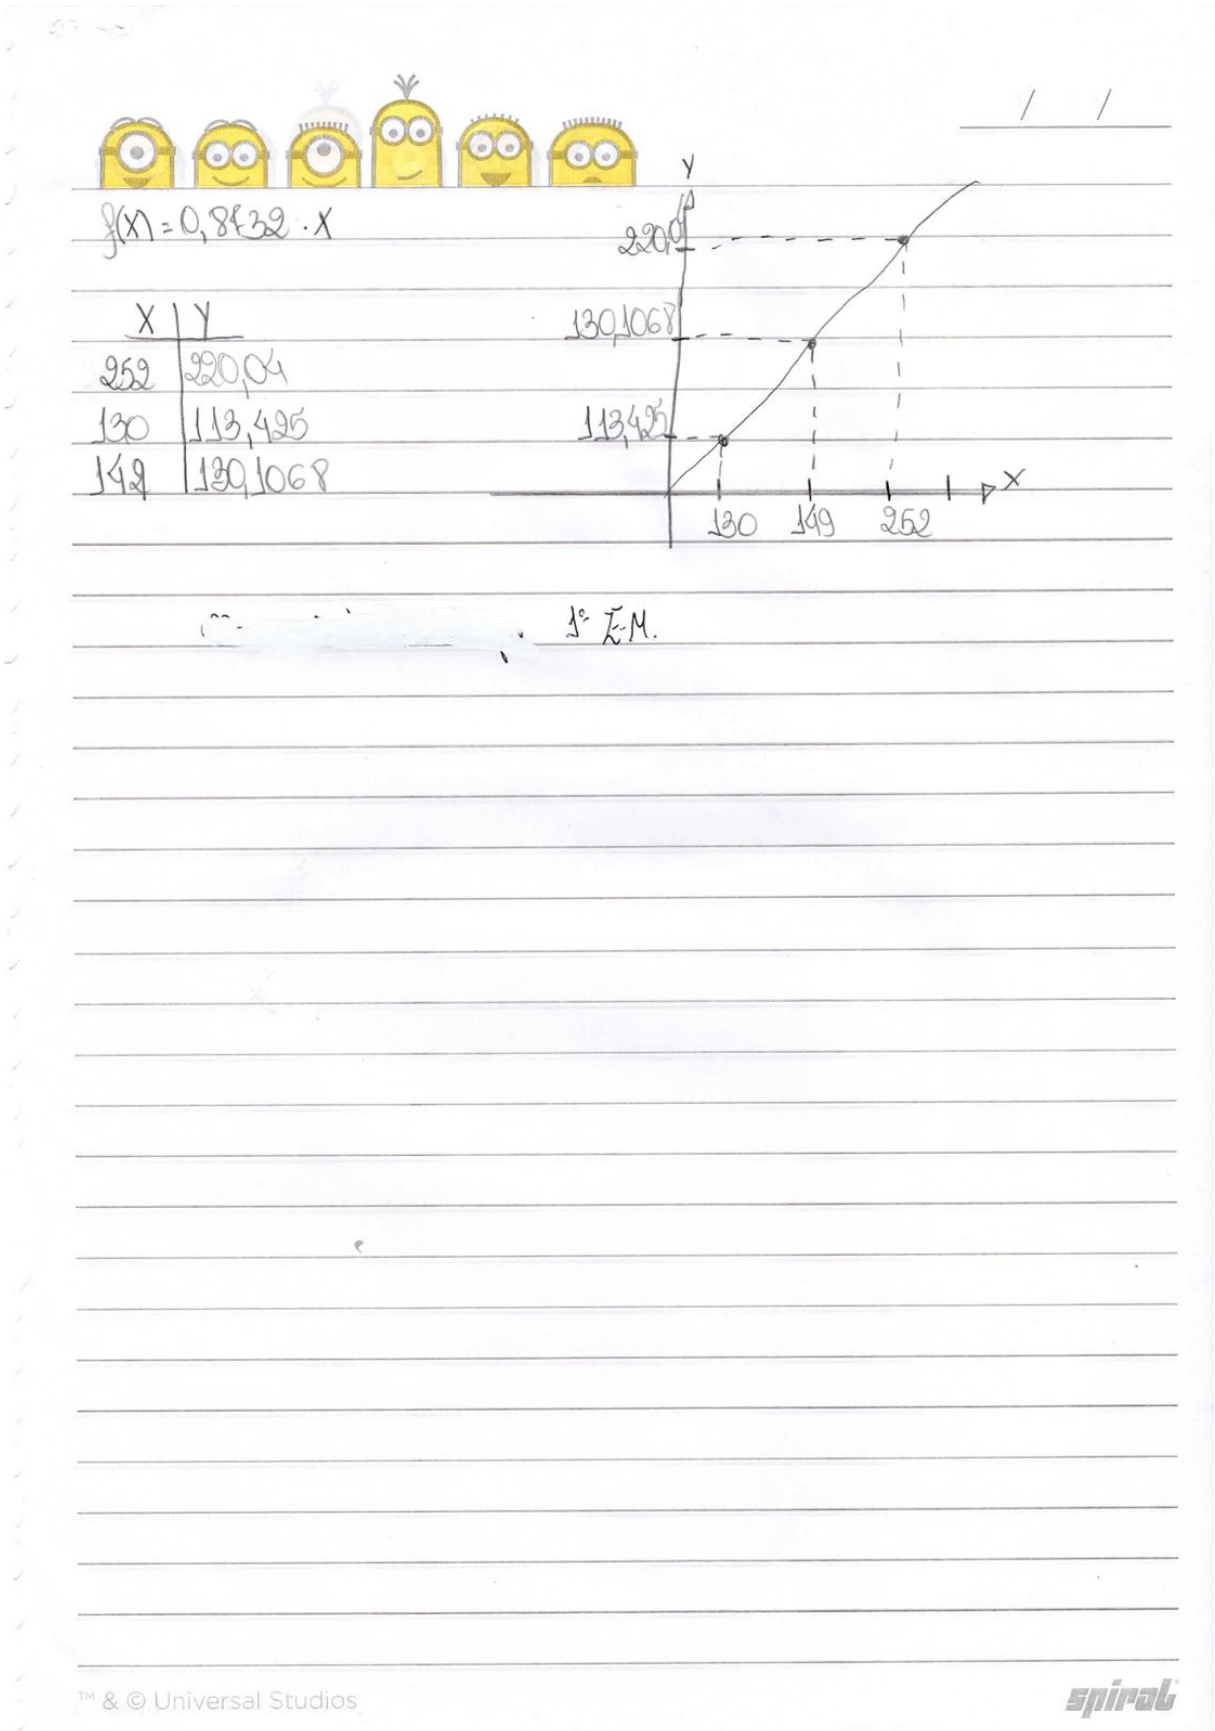 f(x) = 0,8732 . X
X | Y
252 | 220,04
130 | 113,425
149 | 130,1068
Y
220,0
130,1068
113,425
X
130 149 252
1º E.M.
™ & © Universal Studios
spiral